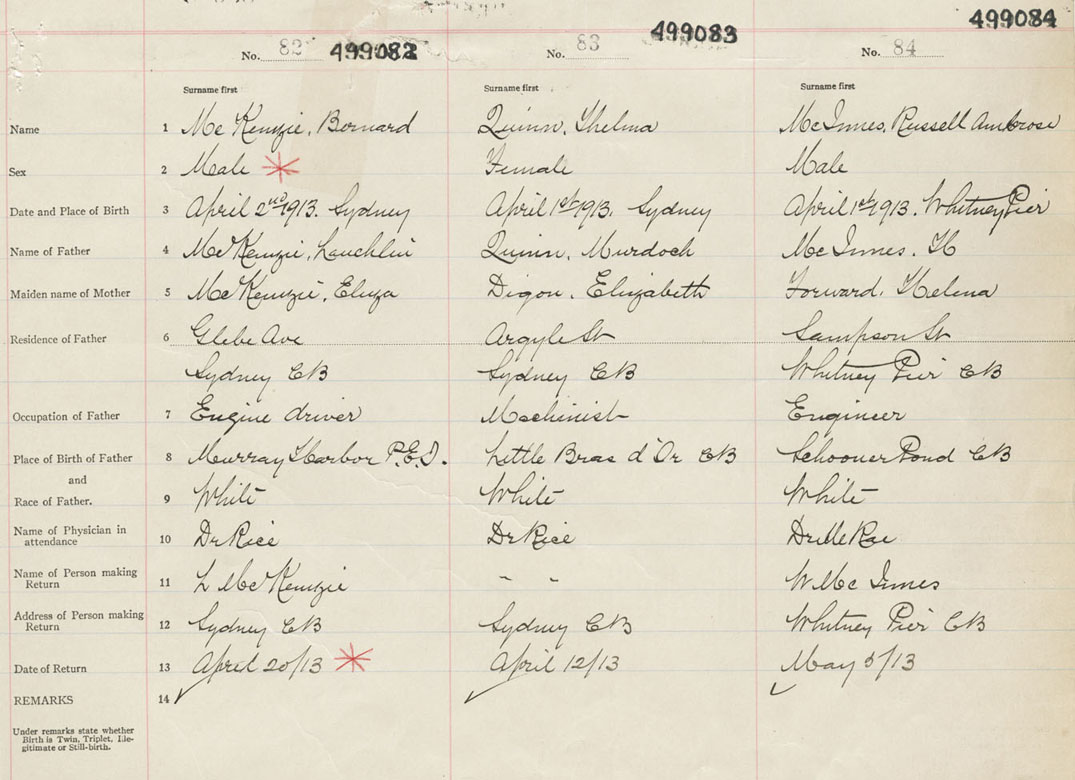 499082 499083 499084
No. 82 No. 83 No. 84
Surname first Surname first Surname first
Name 1 McKenzie, Bernard Quinn, Thelma McInnes, Russell Ambrose
Sex 2 Male Female Male
Date and Place of Birth 3 April 2nd 1913. Sydney April 1st 1913. Sydney April 1st 1913. Whitney Pier
Name of Father 4 McKenzie, Lauchlin Quinn, Murdoch McInnes,
Maiden name of Mother 5 McKenzie, Eliza Digon, Elizabeth Forward, Helena
Residence of Father 6 Glebe Ave Argyle St Sampson St
Sydney CB Sydney CB Whitney Pier CB
Occupation of Father 7 Engine driver Machinist Engineer
Place of Birth of Father 8 Murray Harbor P.E.I. Little Bras d'Or CB Schooner Pond CB
and
Race of Father. 9 White White White
Name of Physician in
attendance 10 Dr Rice Dr Rice Dr McRae
Name of Person making
Return 11 L McKenzie " " W McInnes
Address of Person making
Return 12 Sydney CB Sydney CB Whitney Pier CB
Date of Return 13 April 20/13 April 12/13 May 5/13
REMARKS 14
Under remarks state whether
Birth is Twin, Triplet, Ille-
gitimate or Still-birth.